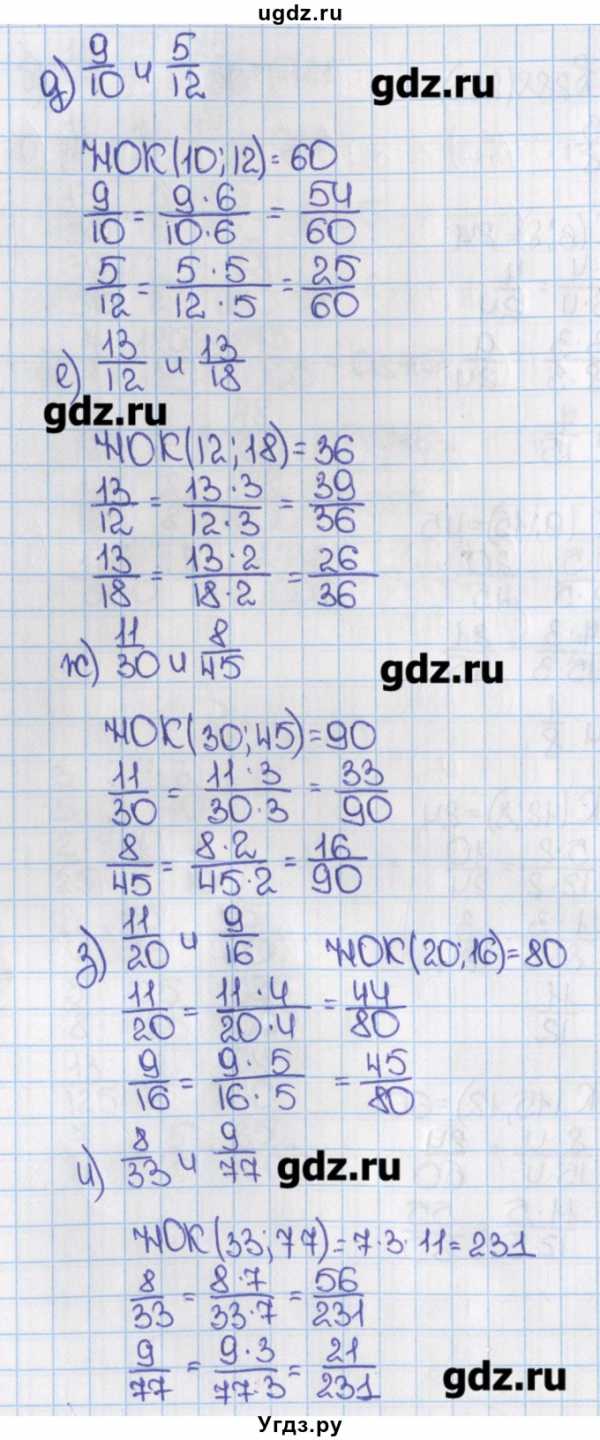 ugdz.ru
д) 9/10 и 5/12
gdz.ru
НОК(10;12)=60
9/10 = 9·6/10·6 = 54/60
5/12 = 5·5/12·5 = 25/60
е) 13/12 и 13/18
gdz.ru
НОК(12;18)=36
13/12 = 13·3/12·3 = 39/36
13/18 = 13·2/18·2 = 26/36
ж) 11/30 и 8/45
gdz.ru
НОК(30;45)=90
11/30 = 11·3/30·3 = 33/90
8/45 = 8·2/45·2 = 16/90
з) 11/20 и 9/16 НОК(20;16)=80
11/20 = 11·4/20·4 = 44/80
9/16 = 9·5/16·5 = 45/80
и) 8/33 и 9/77
gdz.ru
НОК(33;77)=7·3·11=231
8/33 = 8·7/33·7 = 56/231
9/77 = 9·3/77·3 = 21/231
gdz.ru
Угдз.ру